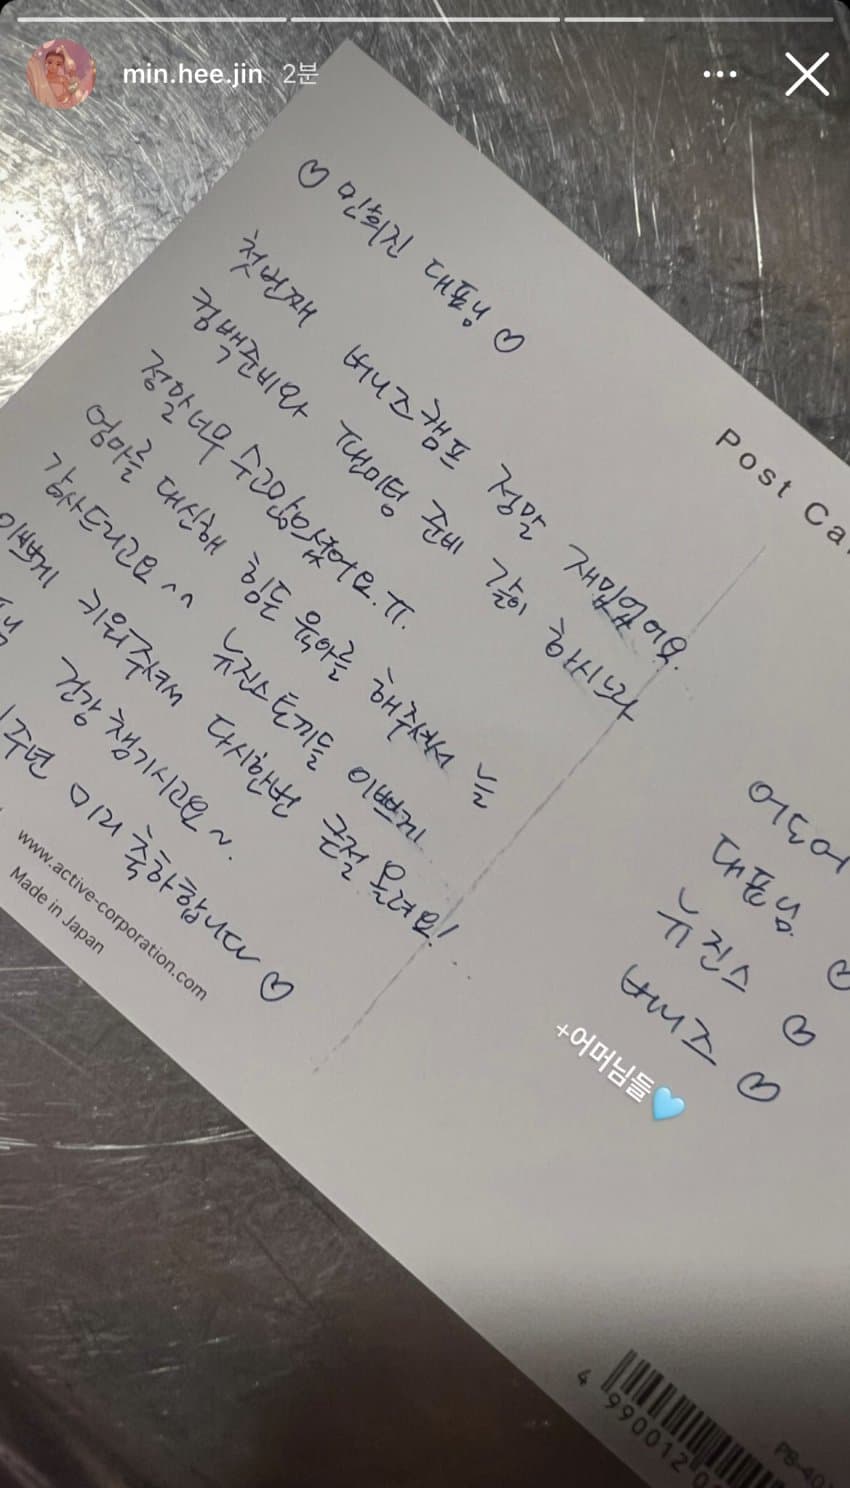 min.hee.jin 2분
♡ 민희진 대표님 ♡
첫번째 버니즈캠프 정말 재밌었어요.
컴백준비와 팬미팅 준비 같이 하시느라
정말 너무 수고많으셨어요.ㅠ.
엄마를 대신해 힘든 육아를 해주셔서 늘
감사드리고요^^ 뉴진스토끼들 이쁘게
이쁘게 키워주셔서 다시한번 큰절 올려요!
건강 챙기시고요~.
1주년 미리 축하합니다 ♡
www.active-corporation.com
Made in Japan
Post Ca
어도어
대표님 ♡
뉴진스 ♡
버니즈 ♡
+어머님들🩵
4 990012 0
PB-40